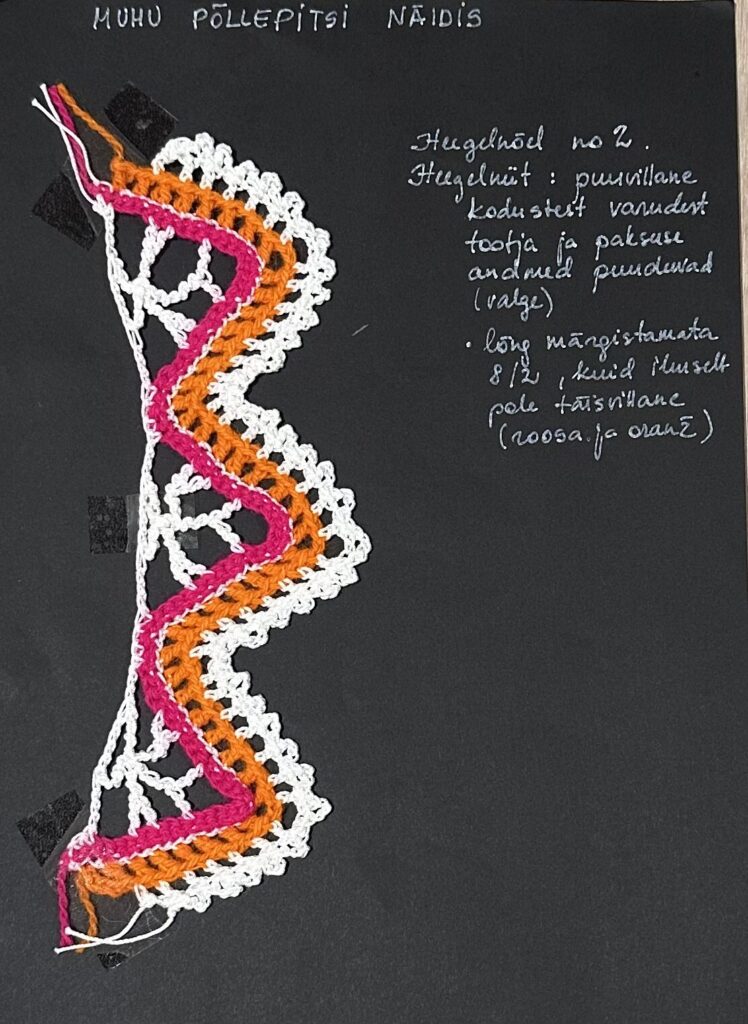 MUHU PÕLLEPITSI NÄIDIS
Heegelnõel no 2.
Heegelniit : puuvillane
kodustest varudest
tootja ja paksuse
andmed puuduvad
(valge)
• lõng märgistamata
8/2, kuid ilmselt
pole täisvillane
(roosa ja oranž)